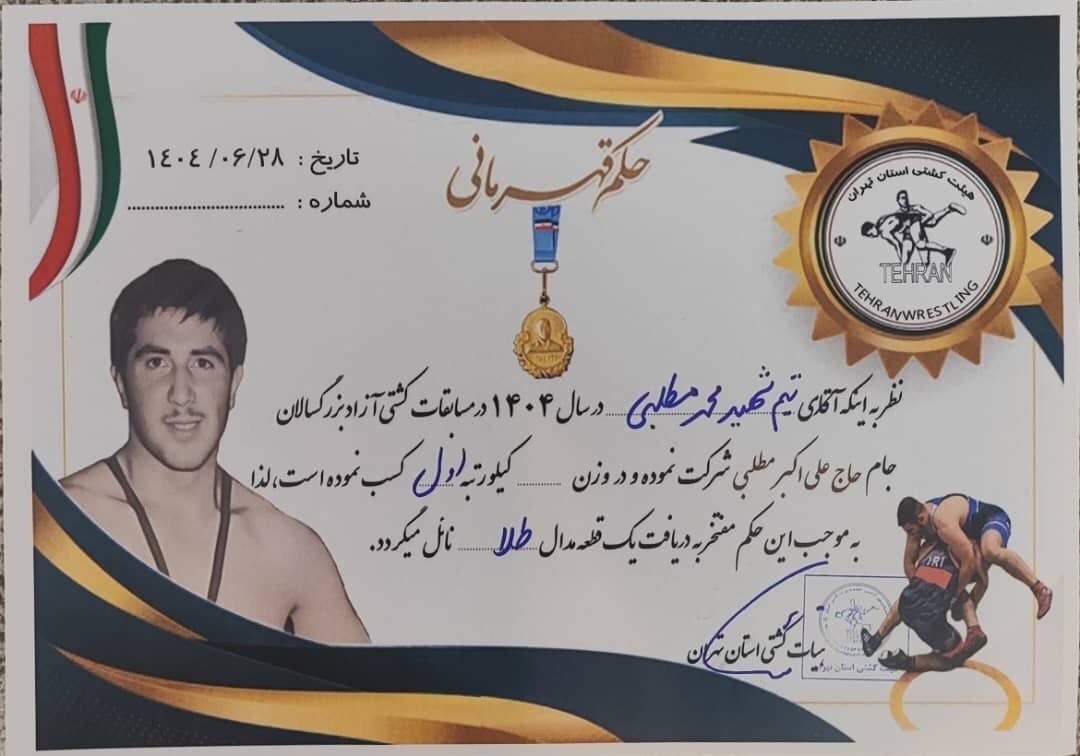 حکم قهرمانی
تاریخ : ۱٤۰٤/۰۶/۲۸
شماره : ......................
هیئت کشتی استان تهران
TEHRAN
TEHRANWRESTLING
نظر به اینکه آقای تیم شهید محمد مطلبی در سال ۱۴۰۴ در مسابقات کشتی آزاد بزرگسالان
جام حاج علی اکبر مطلبی شرکت نموده و در وزن ........ کیلو رتبه اول کسب نموده است، لذا
به موجب این حکم مفتخر به دریافت یک قطعه مدال طلا نائل میگردد.
هیات کشتی استان تهران
هیئت کشتی استان تهران